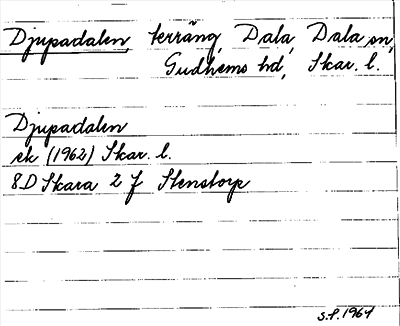 Djupadalen, terräng, Dala, Dala sn,
Gudhems hd, Skar. l.
Djupadalen
ek (1962) Skar. l.
8D Skara 2 f Stenstorp
S.P. 1964